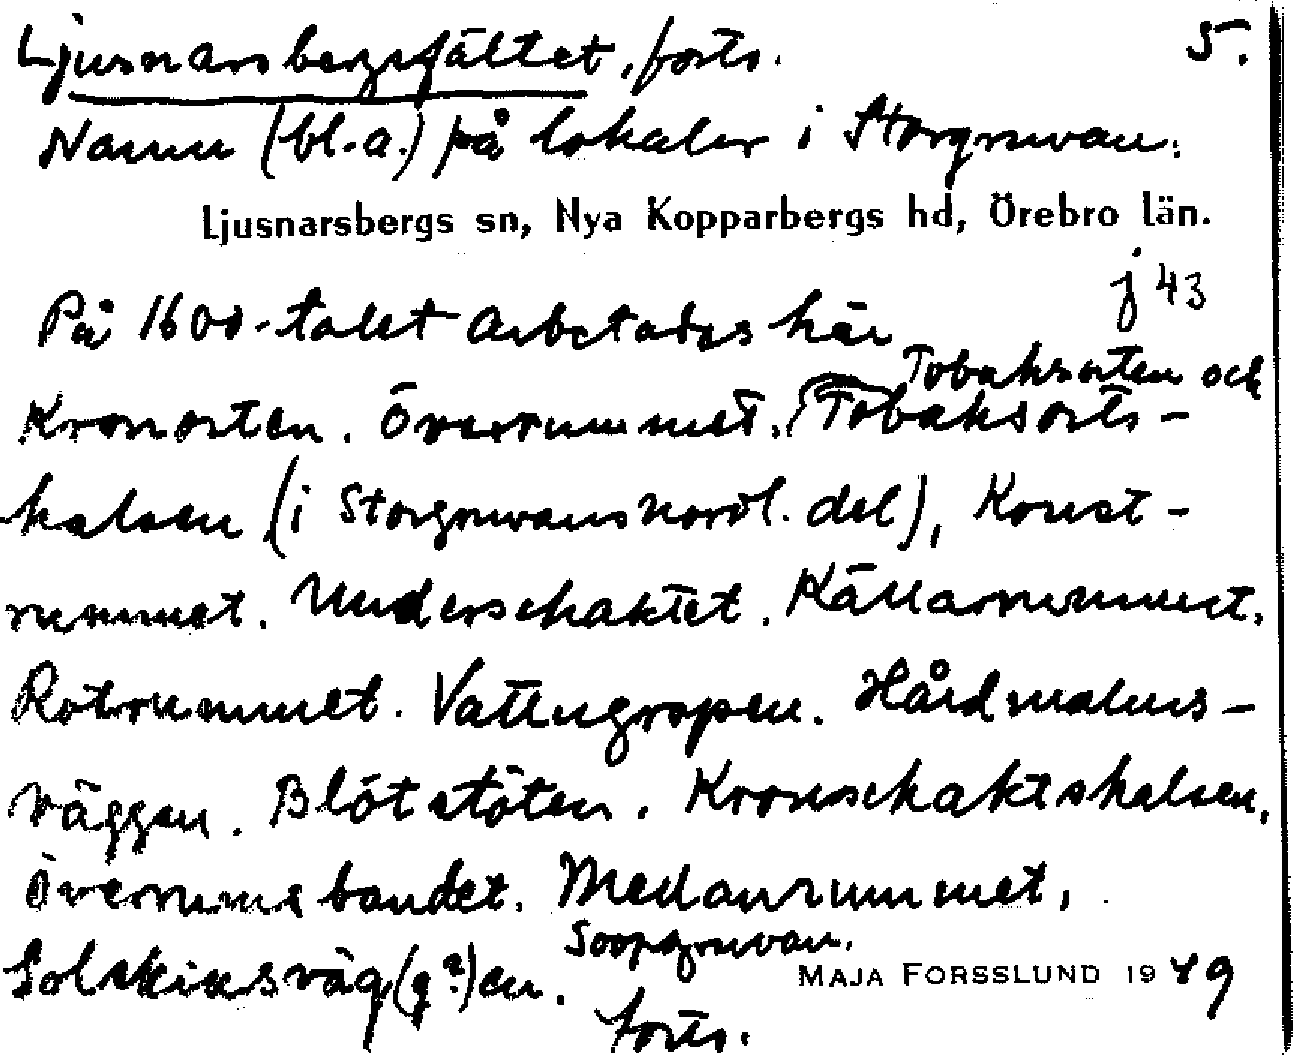 Ljusnarsbergsfältet, forts. 5.
Namn (bl.a.) på lokaler i Storgruvan.
Ljusnarsbergs sn, Nya Kopparbergs hd, Örebro län.
j 43
På 1600-talet arbetades här
Tobaksorten och
Kronorten. Överrummet. Tobaksorts-
halsen (i Storgruvans nordl. del), Konst-
rummet. Underschaktet. Källarrummet.
Rotrummet. Vattugropen. Hårdmalms-
väggen. Blötstöten. Kronschaktshalsen.
Överrumsbandet. Mellanrummet,
Soopgruvan.
Solskinsväg(g?)en.
MAJA FORSSLUND 1949
forts.